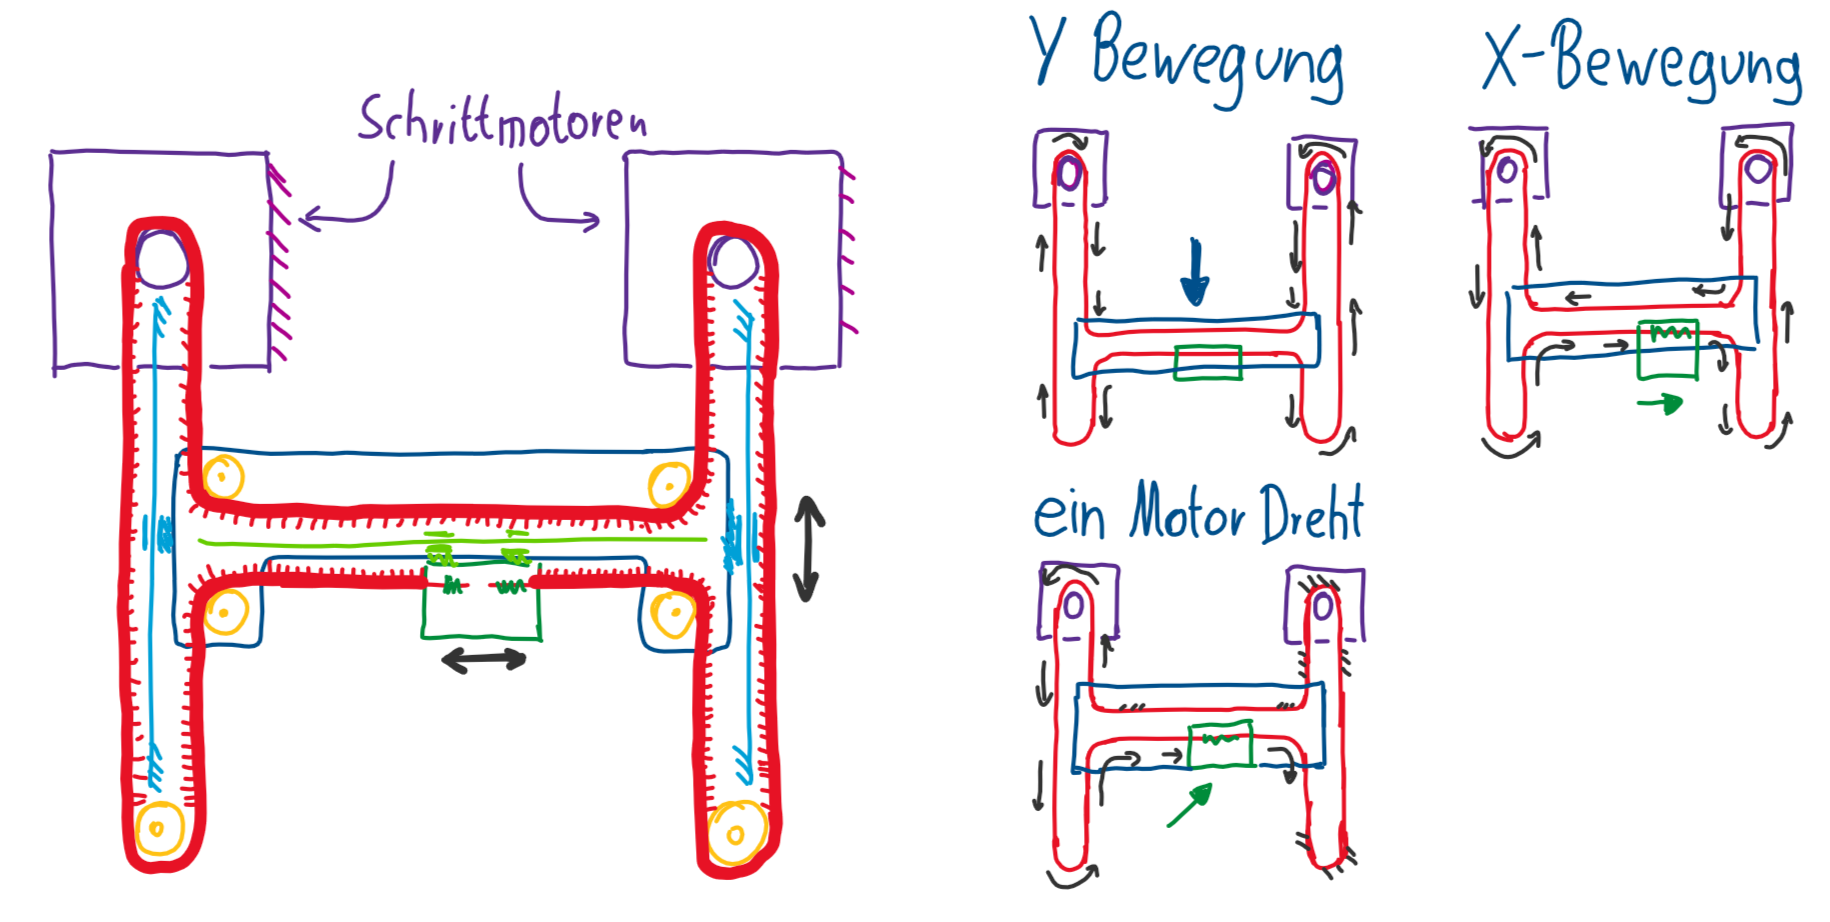 Schrittmotoren
Y Bewegung
X-Bewegung
ein Motor Dreht